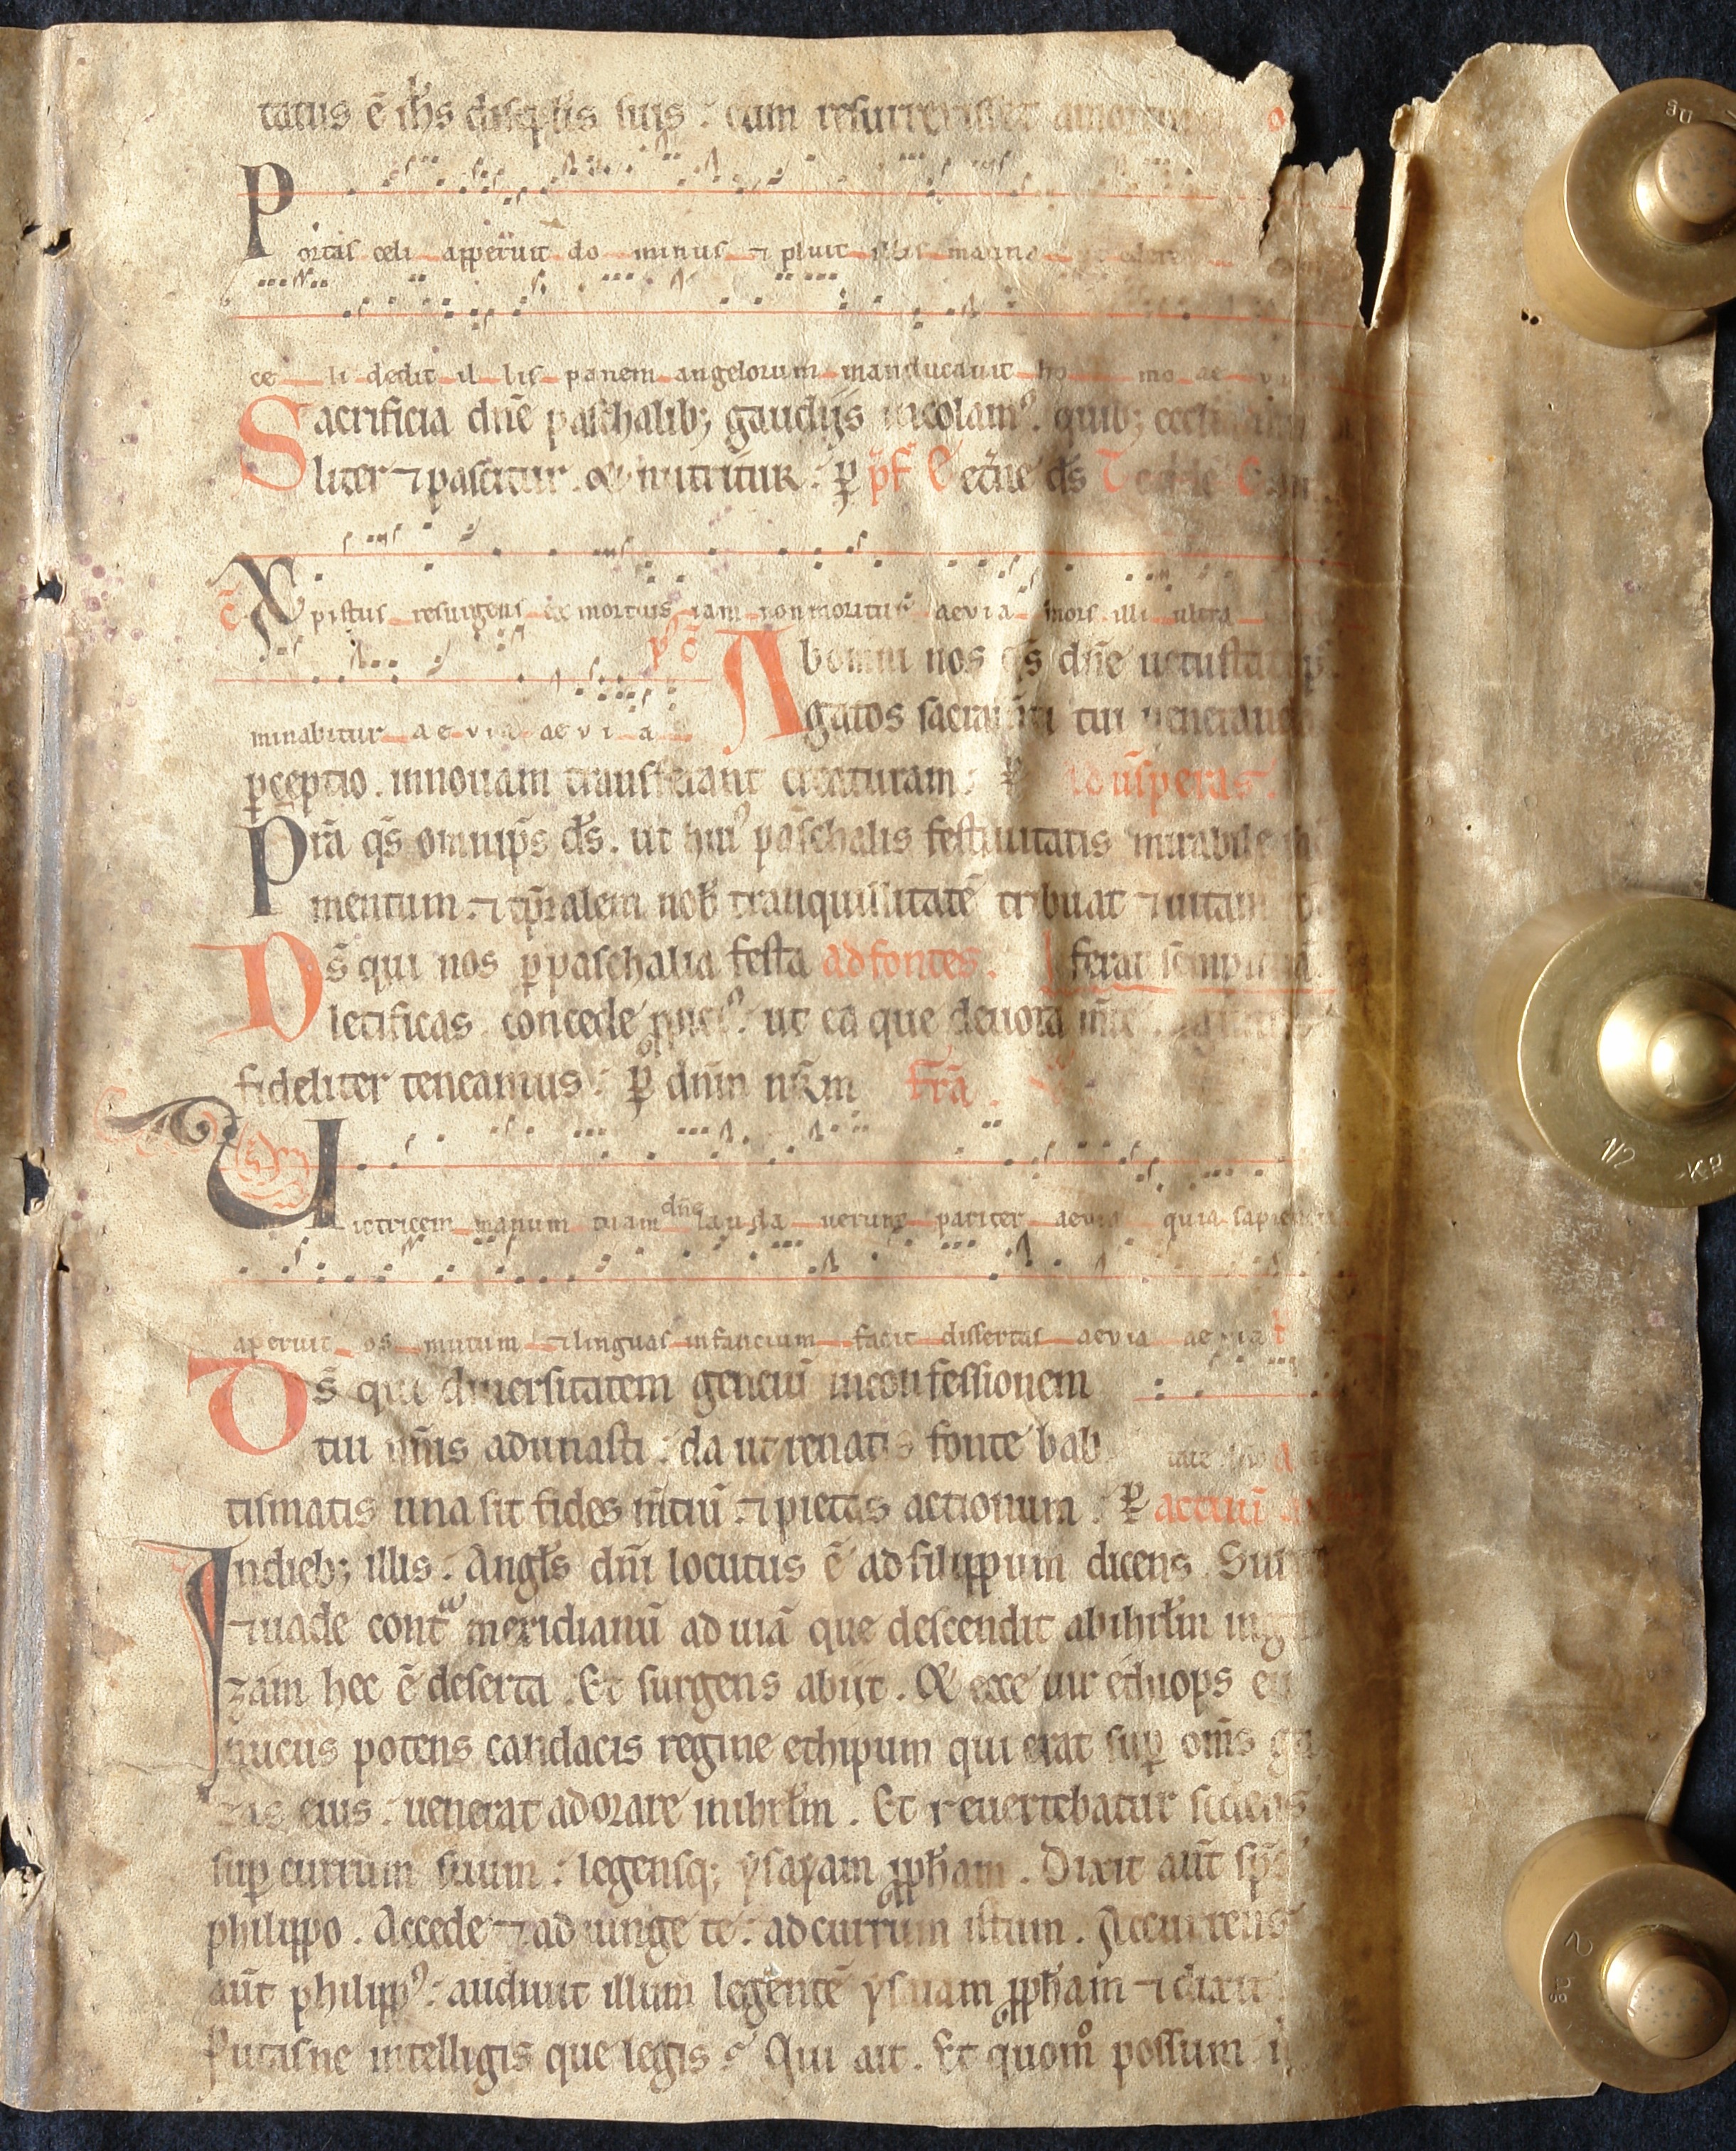 tatus ē ihs discipl̄is suis : cum resurrexisset
Portas celi apperuit do minus ⁊ pluit illis manna
ce li dedit il lis panem angelorum manducauit ho mo ae
Sacrificia dn̄e paschalib; gaudijs īmolam᷒. quib; eccl̄ia
liter ⁊ pascitur. & nutritur : ꝑ p̄f Et̄ne ds̄
c̄ Xpistus resurgens ex mortuis iam non moritur aevia mors illi ultra
p̄ c̄ Ab omni nos qs̄ dn̄e uetustate
minabitur aevia aevia gatos sacram̄ti tui ueneranda
ꝑceptio. in nouam transferant creaturam : ꝑ ad uīsperas.
Pr̄a qs̄ omnip̄s ds̄. ut hui᷒ paschalis festiuitatis mirabile
mentum. ⁊ tp̄ralem nob̄ tranquillitatē tribuat ⁊ uitam
Ds̄ qui nos ꝑ paschalia festa ad fontes. ferat sēmpiternā
letificas. concede ꝓpici᷒. ut ea que deuota
fideliter teneamus : ꝑ dn̄m nr̄m fr̄a.
Uictricem manum tuam dn̄e lauda uerunt pariter aevia quia sapiencia
aperuit os mutum ⁊ linguas infancium facit dissertas aevia aevia
Ds̄ qui diuersitatem genciū in confessionem
tui nn̄is adunasti : da ut renatis fonte bab
tismatis una sit fides m̄tiū ⁊ pietas actionum : ꝑ actuū
In dieb; illis : Angl̄s dn̄i locutus ē ad filippum dicens. Surge
⁊ uade cont̄ meridianū ad uiā que descendit ab ihrl̄m in ga
zam hec ē deserta. Et surgens abijt. & ecce uir ethiops eu
nucus potens candacis regine ethipum qui erat sup̄ om̄s ga
zas eius : uenerat adorare in ihrl̄m. Et reuertebatur sedens
sup̄ currum suum : legensq; ysayam ꝓph̄am. Dixit aūt sp̄s
philippo. Accede ⁊ ad iunge te : ad currum istum. Accurrens
aūt philipp᷒ : audiuit illum legentē ysaiam ꝓph̄am ⁊ dixit.
Putasne intelligis que legis? Qui ait. Et quom̊ possum